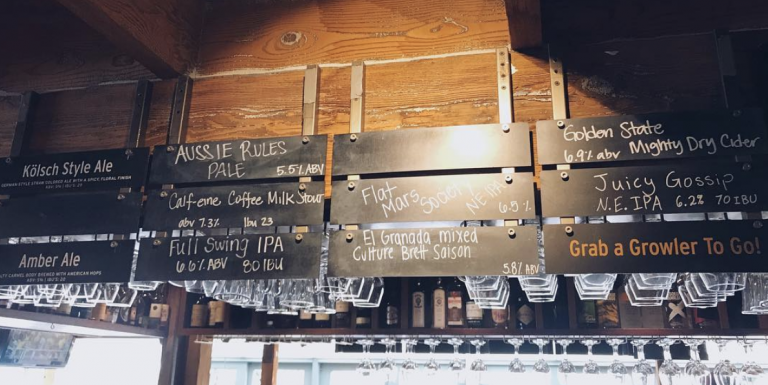 Kölsch Style Ale
GERMAN-STYLE STRAW COLORED ALE WITH A SPICY, FLORAL FINISH
Amber Ale
CARMEL BODY BREWED WITH AMERICAN HOPS
AUSSIE RULES
PALE 5.5% ABV
Calf-eine Coffee Milk Stout
abv 7.3% Ibu 23
Full Swing IPA
6.6% ABV 80 IBU
Flat
Mars Society NE IPA
6.5%
El Granada mixed
Culture Brett Saison
5.8% ABV
Golden State
6.9% abv Mighty Dry Cider
Juicy Gossip
N.E. IPA 6.2% 70 IBU
Grab a Growler To Go!